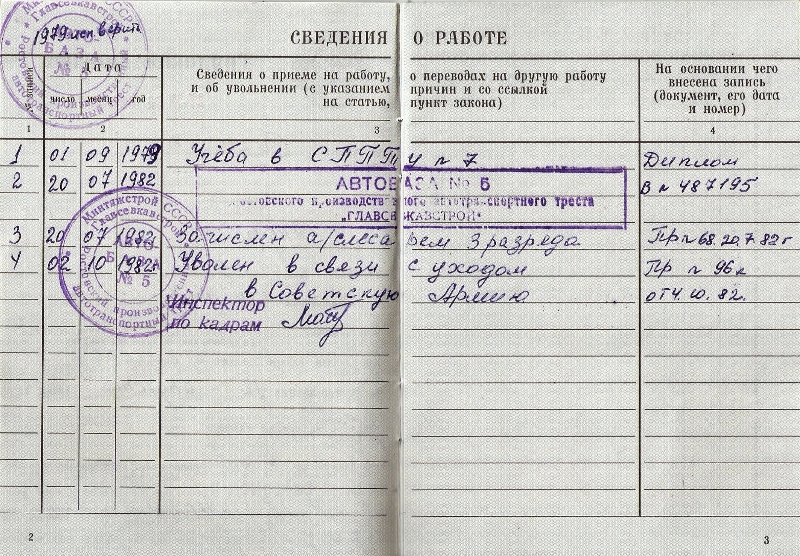 1979 исп. верить
СВЕДЕНИЯ О РАБОТЕ
№ записи
Дата
число месяц год
Сведения о приеме на работу, о переводах на другую работу
и об увольнении (с указанием причин и со ссылкой
на статью, пункт закона)
На основании чего
внесена запись
(документ, его дата
и номер)
1 2 3 4
1 01 09 1979 Учёба в СПТУ № 7 Диплом
2 20 07 1982 В № 487195
АВТОБАЗА № 5
Ростовского производственного автотранспортного треста
„ГЛАВСЕВКАВСТРОЙ“
3 20 07 1982 Зачислен а/слесарем 3 разряда Пр № 68 20.7.82г
4 02 10 1982г Уволен в связи с уходом Пр № 96к
в Советскую Армию от 4.10.82.
Инспектор
по кадрам
Минтяжстрой СССР
Главсевкавстрой
АВТО
БАЗА
№ 5
автотранспортный трест
2
3